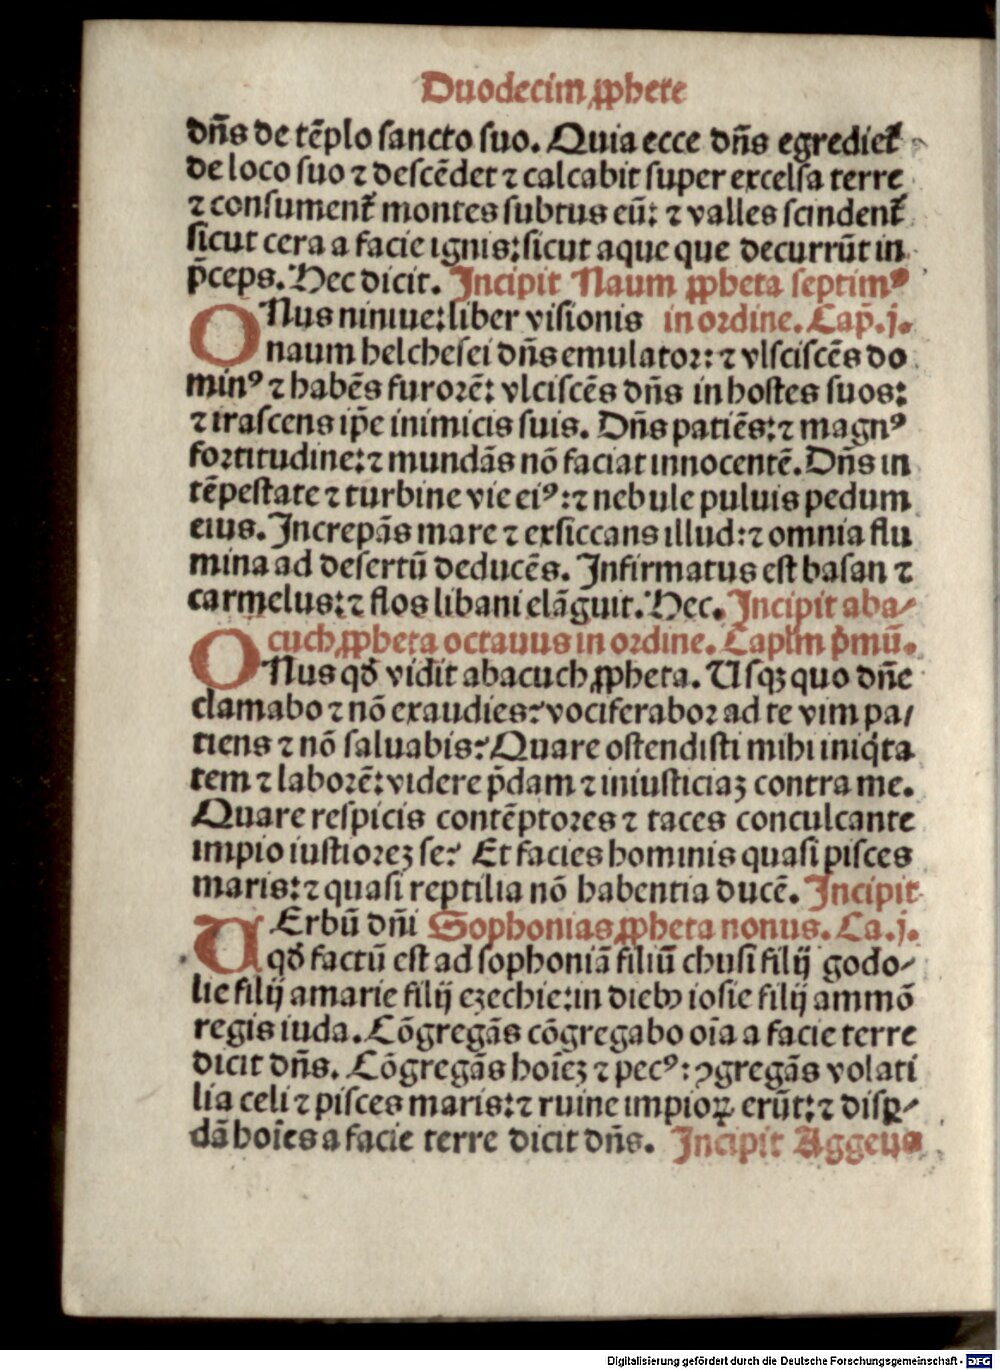 Duodecim ꝓphete
dn̄s de tēplo sancto suo. Quia ecce dn̄s egrediet᷑
de loco suo ⁊ descēdet ⁊ calcabit super excelsa terre
⁊ consument᷑ montes subtus eū: ⁊ valles scindent᷑
sicut cera a facie ignis: sicut aque que decurrūt in
p̄ceps. Hec dicit. Incipit Naum ꝓpheta septimꝰ
ONus niniue: liber visionis in ordine. Cap̄. j.
naum helchesei dn̄s emulator: ⁊ vlsciscēs do
minꝰ ⁊ habēs furorē: vlciscēs dn̄s in hostes suos:
⁊ irascens ip̄e inimicis suis. Dn̄s patiēs: ⁊ magnꝰ
fortitudine: ⁊ mundās nō faciat innocentē. Dn̄s in
tēpestate ⁊ turbine vie eiꝰ: ⁊ nebule puluis pedum
eius. Increpās mare ⁊ exsiccans illud: ⁊ omnia flu
mina ad desertū deducēs. Infirmatus est basan ⁊
carmelus: ⁊ flos libani elāguit. Hec. Incipit aba⸗
cuch ꝓpheta octauus in ordine. Caplm p̄mū.
ONus qđ vidit abacuch ꝓpheta. Usqꝫ quo dn̄e
clamabo ⁊ nō exaudies: vociferabor ad te vim pa/
tiens ⁊ nō saluabis: Quare ostendisti mihi iniqͥta
tem ⁊ laborē: videre p̄dam ⁊ iniusticiaꝫ contra me.
Quare respicis contēptores ⁊ taces conculcante
impio iustioreꝫ se: Et facies hominis quasi pisces
maris: ⁊ quasi reptilia nō habentia ducē. Incipit
UErbū dn̄i Sophonias ꝓpheta nonus. Ca. j.
qđ factū est ad sophoniā filiū chusi filij godo⸗
lie filij amarie filij ezechie: in diebꝰ iosie filij ammō
regis iuda. Cōgregās cōgregabo oīa a facie terre
dicit dn̄s. Cōgregās hoīeꝫ ⁊ pecꝰ: ꝯgregās volati
lia celi ⁊ pisces maris: ⁊ ruine impioꝝ erūt: ⁊ disꝑ⸗
dā hoīes a facie terre dicit dn̄s. Incipit Aggeus
Digitalisierung gefördert durch die Deutsche Forschungsgemeinschaft - DFG